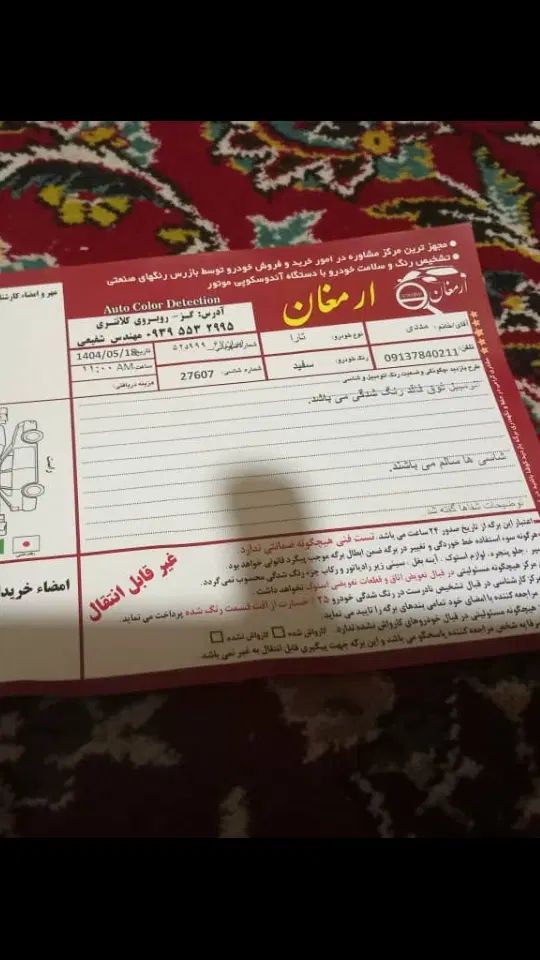 مجهز ترین مرکز مشاوره در امور خرید و فروش خودرو توسط بازرس رنگهای صنعتی
تشخیص رنگ و سلامت خودرو با دستگاه آندوسکوپی موتور
ارمغان
ارمغان
Auto Color Detection
آدرس: گز - روبروی کلانتری
۰۹۳۹ ۵۵۳ ۲۹۹۵ مهندس شفیعی
مهر و امضاء کارشناس
آقای/خانم:
نوع خودرو: تارا
تاریخ: 1404/05/18
تلفن: 09137840211
رنگ خودرو: سفید
شماره شاسی: 27607
ساعت: 11:00 AM
هزینه دریافتی:
طرح بازدید چگونگی وضعیت رنگ اتومبیل و شاسی
اتومبیل فوق فاقد رنگ شدگی می باشد.
شاسی ها سالم می باشند.
توضیحات شفاها گفته شد
اعتبار این برگه از تاریخ صدور ۲۴ ساعت می باشد. تست فنی هیچگونه ضمانتی ندارد
هرگونه سوء استفاده خط خوردگی و تغییر در برگه ضمن ابطال برگه موجب پیگرد قانونی خواهد بود.
سپر، جلو پنجره، لوازم استوک، آینه بغل، سینی زیر رادیاتور و رکاب جزء رنگ شدگی محسوب نمی گردد.
مرکز هیچگونه مسئولیتی در قبال تعویض اتاق و قطعات تعویضی استوک نخواهد داشت.
مرکز کارشناسی در قبال تشخیص نادرست در رنگ شدگی خودرو ۳۵٪ خسارت از افت قسمت رنگ شده پرداخت می نماید.
مراجعه کننده با امضای خود تمامی بندهای برگه را تایید می نماید
هیچگونه مسئولیتی در قبال خودروهای کارواش نشده ندارد. کارواش شده کارواش نشده
به شخص مراجعه کننده پاسخگو می باشد و این برگه جهت پیگیری قابل انتقال به غیر نمی باشد
غیر قابل انتقال
امضاء خریدا